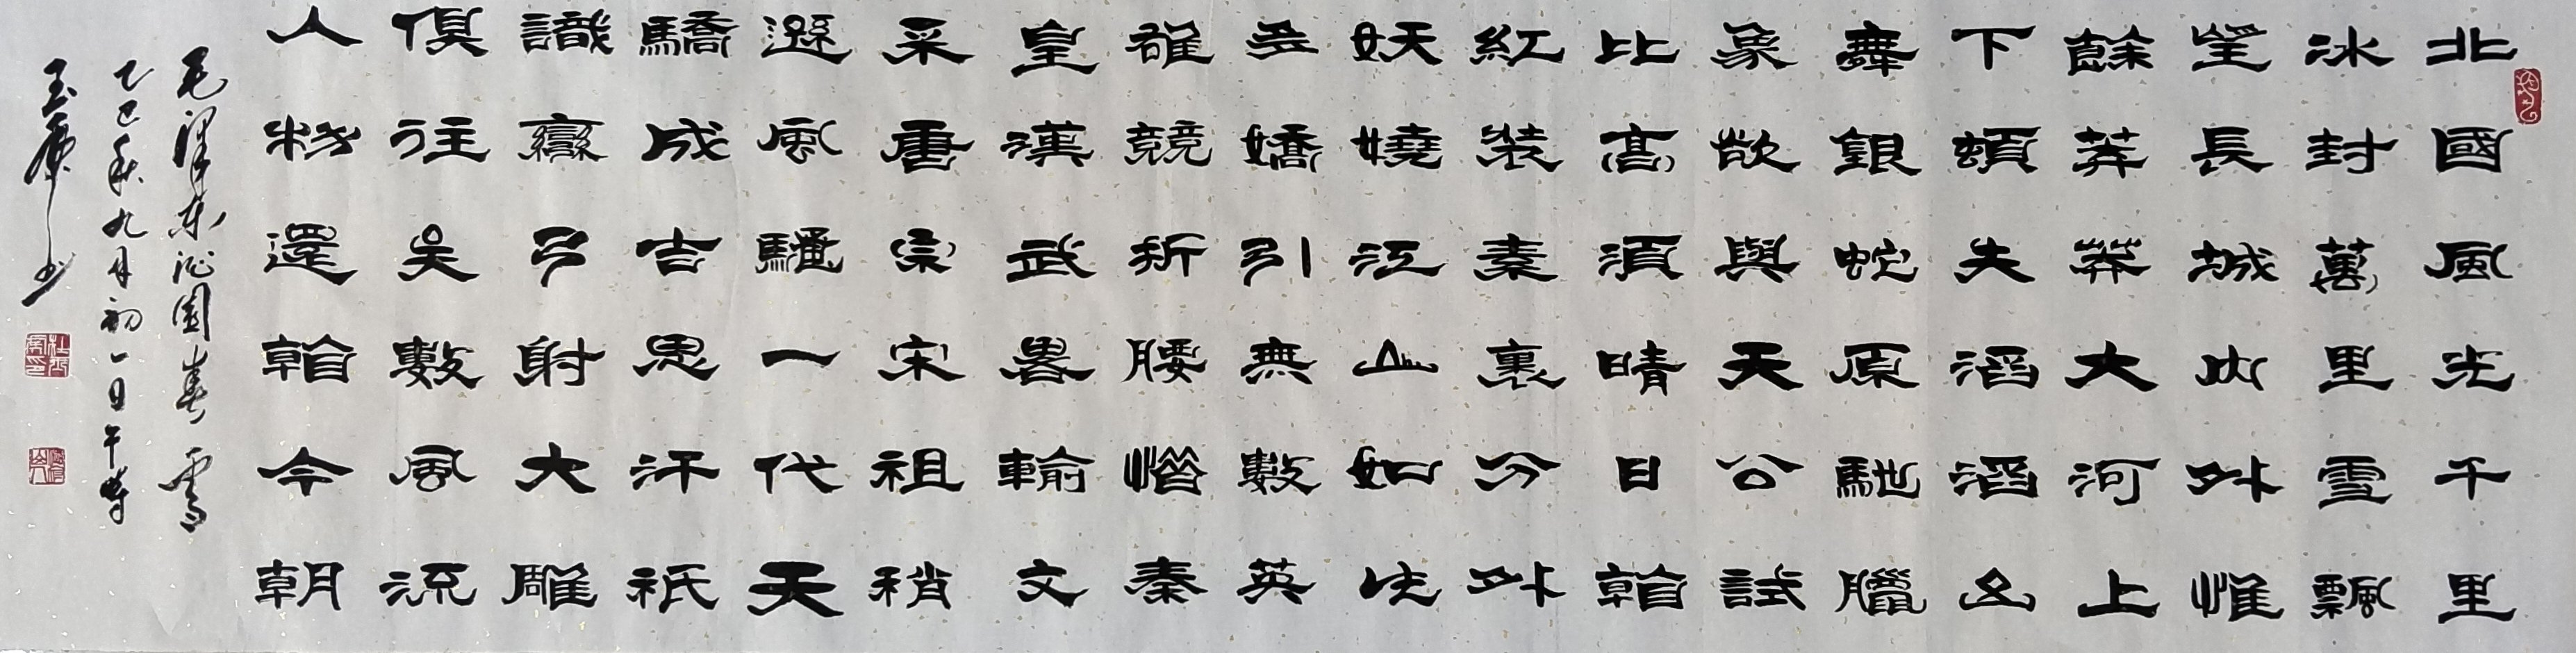 北國風光千里
冰封萬里雪飄
望長城內外惟
餘莽莽大河上
下頓失滔滔山
舞銀蛇原馳臘
象欲與天公試
比高須晴日看
紅裝素裹分外
妖嬈江山如此
多嬌引無數英
雄競折腰惜秦
皇漢武畧輸文
采唐宗宋祖稍
遜風騷一代天
驕成吉思汗祇
識彎弓射大雕
俱往矣數風流
人物還看今朝
毛澤東沁園春雪
乙巳秋九月初一日午時
玉庚书